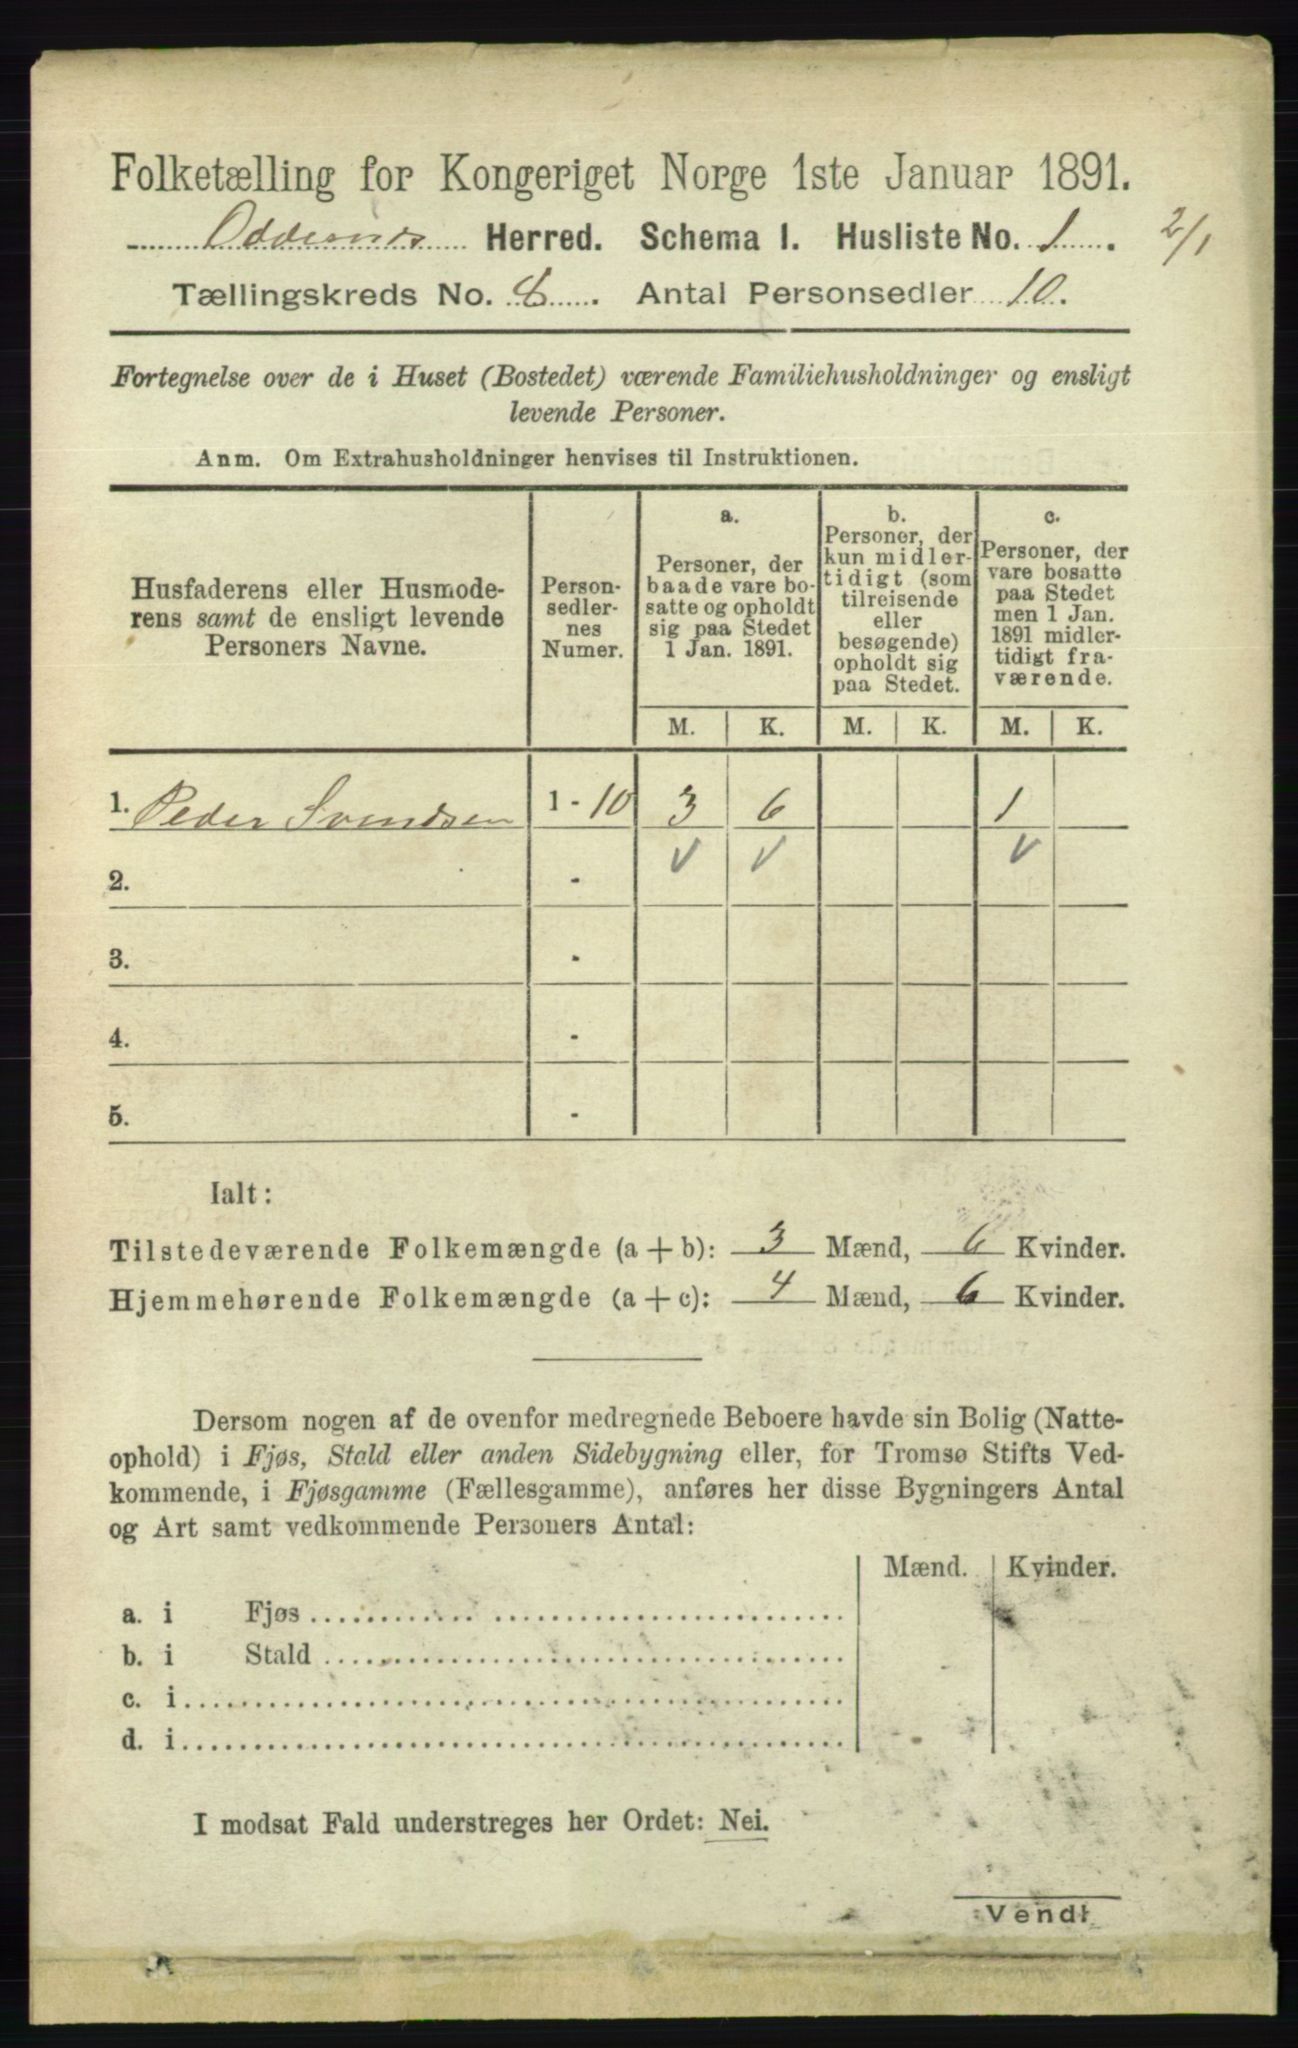 Folketælling for Kongeriget Norge 1ste Januar 1891.
Oddernes Herred. Schema I. Husliste No. 1. 2/1
Tællingskreds No. 8. Antal Personsedler 10.
Fortegnelse over de i Huset (Bostedet) værende Familiehusholdninger og ensligt
levende Personer.
Anm. Om Extrahusholdninger henvises til Instruktionen.
Husfaderens eller Husmode-
rens samt de ensligt levende
Personers Navne.
Person-
sedler-
nes
Numer.
a.
Personer, der
baade vare bo-
satte og opholdt
sig paa Stedet
1 Jan. 1891.
b.
Personer, der
kun midler-
tidigt (som
tilreisende
eller
besøgende)
opholdt sig
paa Stedet.
c.
Personer, der
vare bosatte
paa Stedet
men 1 Jan.
1891 midler-
tidigt fra-
værende.
M. K. M. K. M. K.
1. Peder Svendsen 1 - 10 3 6 1
2. - √ √ √
3. -
4. -
5. -
Ialt:
Tilstedeværende Folkemængde (a + b): 3 Mænd, 6 Kvinder.
Hjemmehørende Folkemængde (a + c): 4 Mænd, 6 Kvinder.
Dersom nogen af de ovenfor medregnede Beboere havde sin Bolig (Natte-
ophold) i Fjøs, Stald eller anden Sidebygning eller, for Tromsø Stifts Ved-
kommende, i Fjøsgamme (Fællesgamme), anføres her disse Bygningers Antal
og Art samt vedkommende Personers Antal:
Mænd. Kvinder.
a. i Fjøs
b. i Stald
c. i
d. i
I modsat Fald understreges her Ordet: Nei.
Vendt